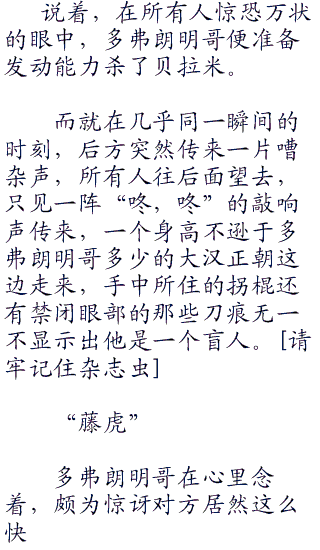 说着，在所有人惊恐万状
的眼中，多弗朗明哥便准备
发动能力杀了贝拉米。
而就在几乎同一瞬间的
时刻，后方突然传来一片嘈
杂声，所有人往后面望去，
只见一阵“咚，咚”的敲响
声传来，一个身高不逊于多
弗朗明哥多少的大汉正朝这
边走来，手中所住的拐棍还
有禁闭眼部的那些刀痕无一
不显示出他是一个盲人。[请
牢记住杂志虫]
“藤虎”
多弗朗明哥在心里念
着，颇为惊讶对方居然这么
快